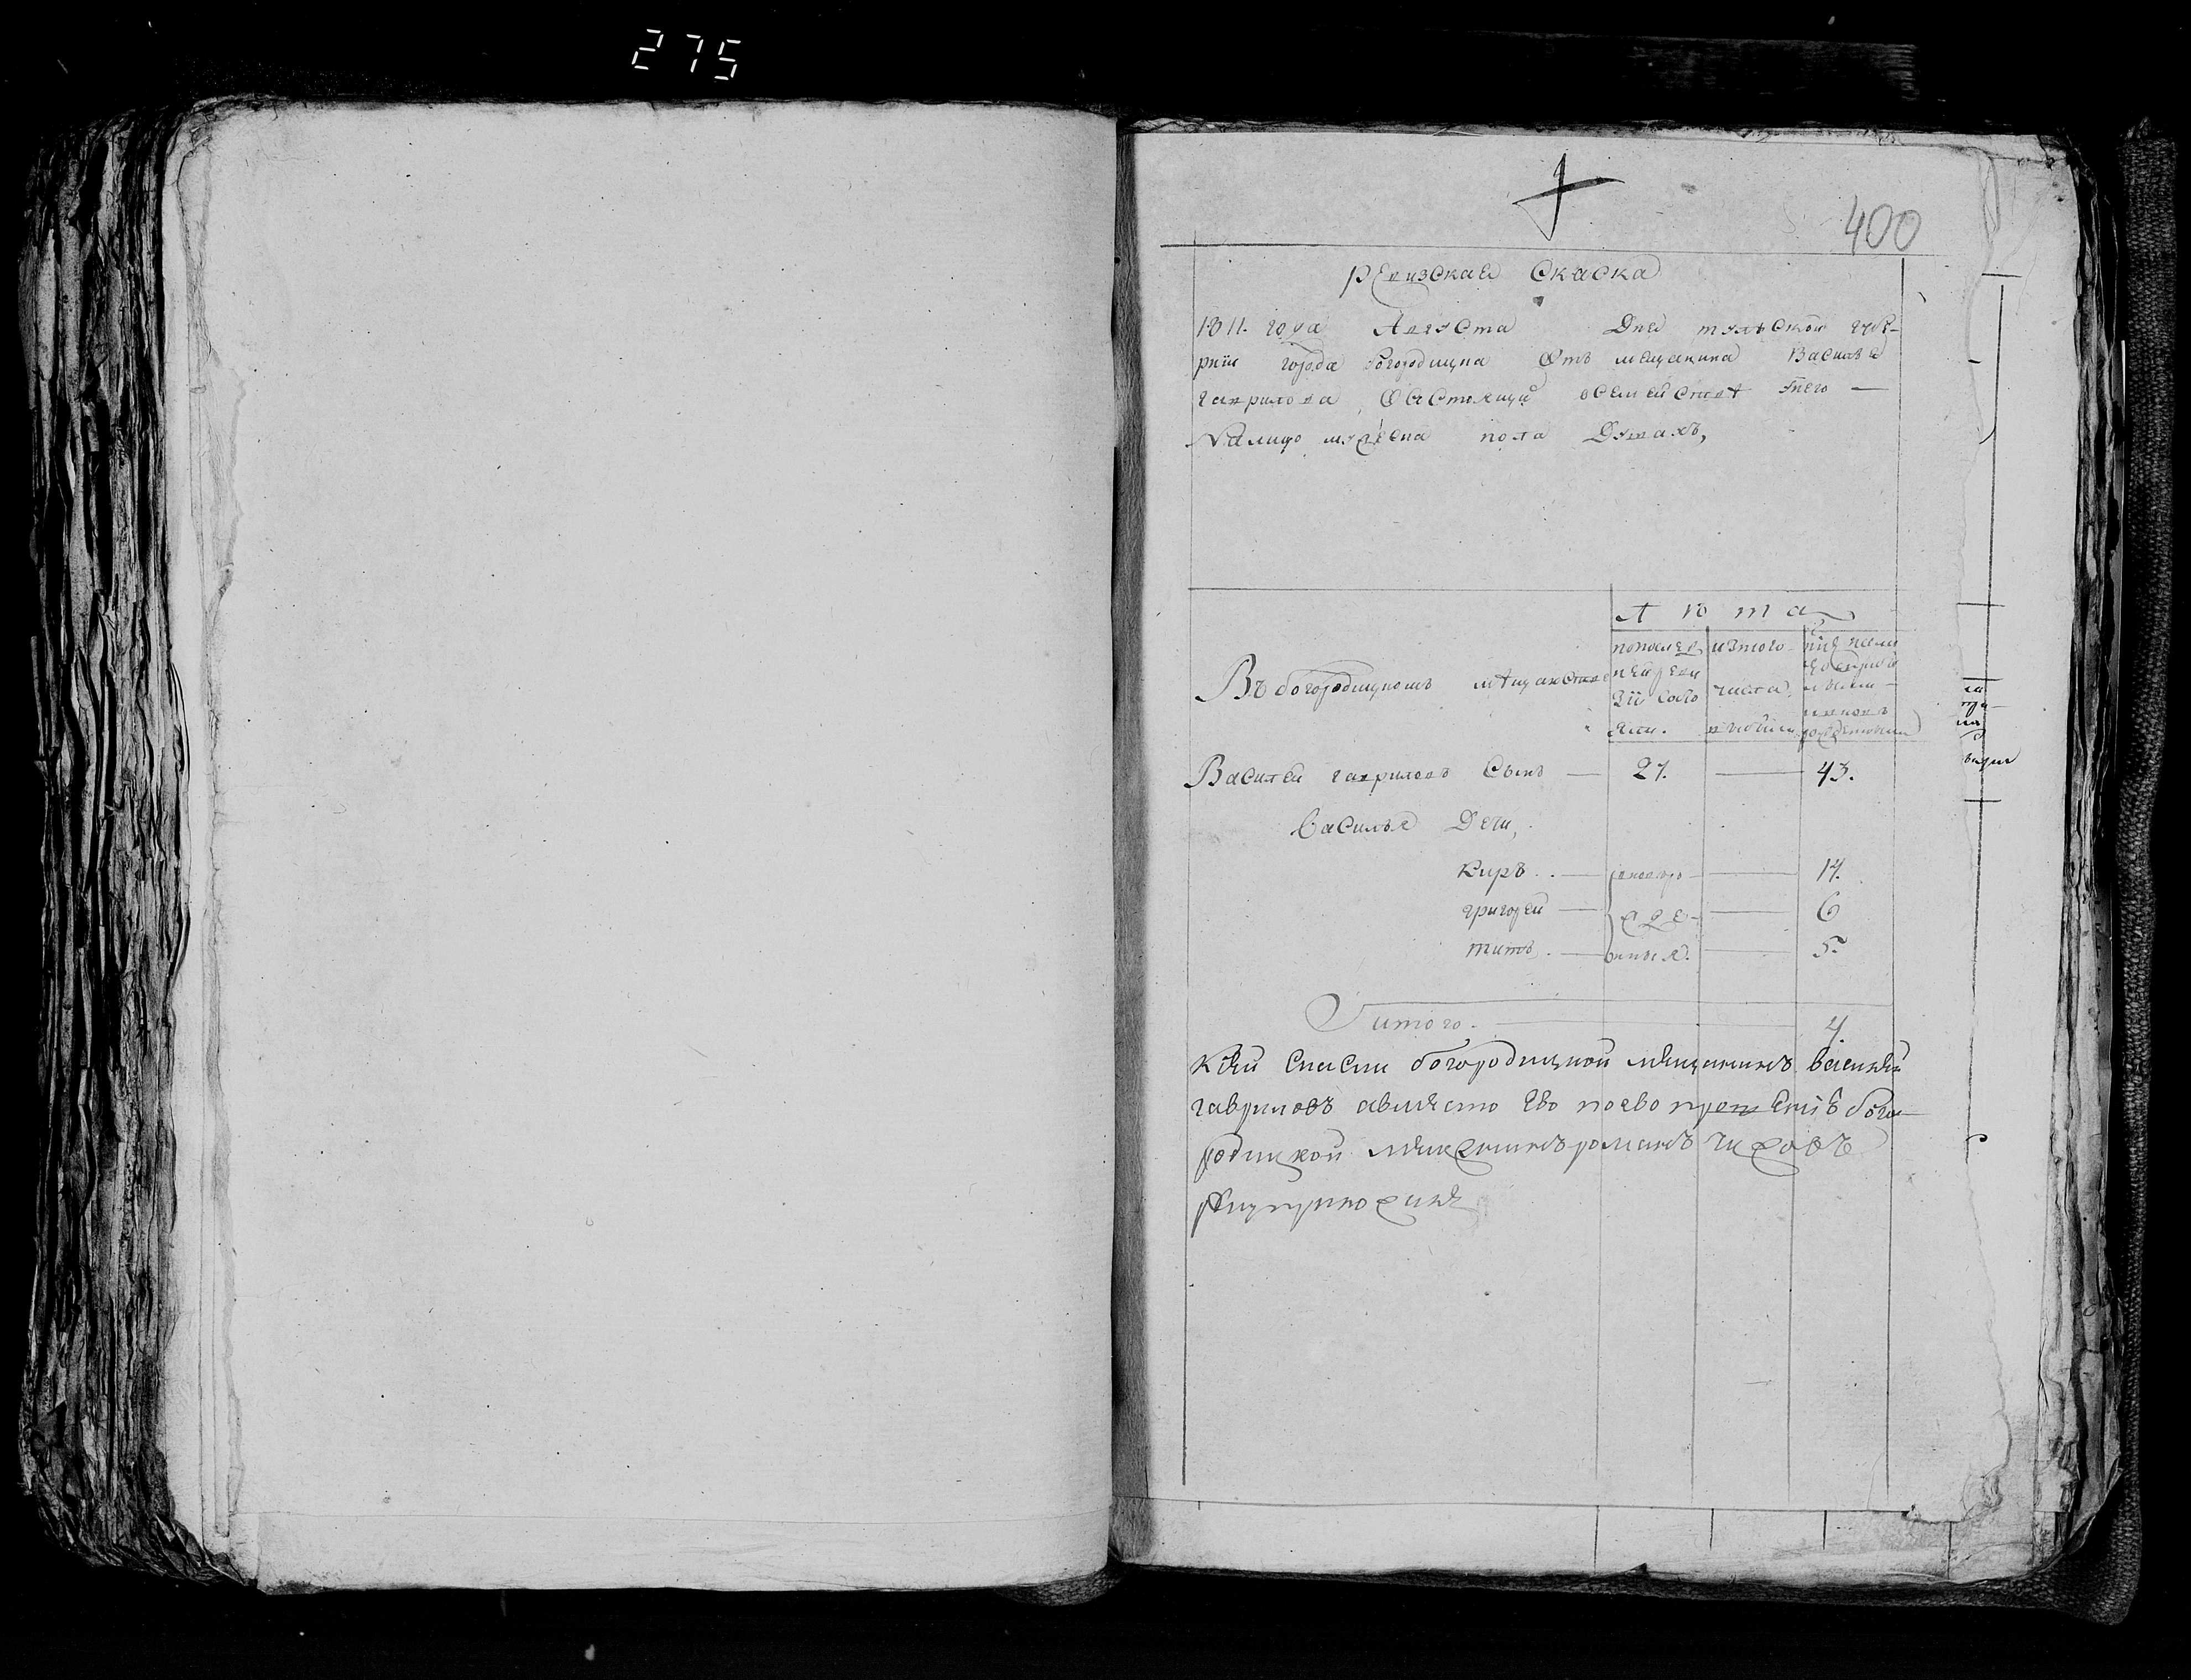 275
400
ревизская скаска
1811. года Августа Дня тульской губе-
рнии города богородицка Отъ мещанина Василья
гаврилова, О состоящих в семействе у него —
Налицо мужеска пола Душахъ,
лѣта
Въ богородицкомъ мещанстве
по после
дней реви
зии состо
яли.
изтого
числа
Василей гавриловъ Сынъ — 27. — 43.
Василья Дети,
Киръ . . — — 17.
григорей — — 6
титъ . — — 5.
итого. — 4.
к сей скаски богородицкой мещанинъ василей
гавриловъ авместо ево поево прозбе бого
родицкой мещенинъ романъ чиховъ
руку приложилъ